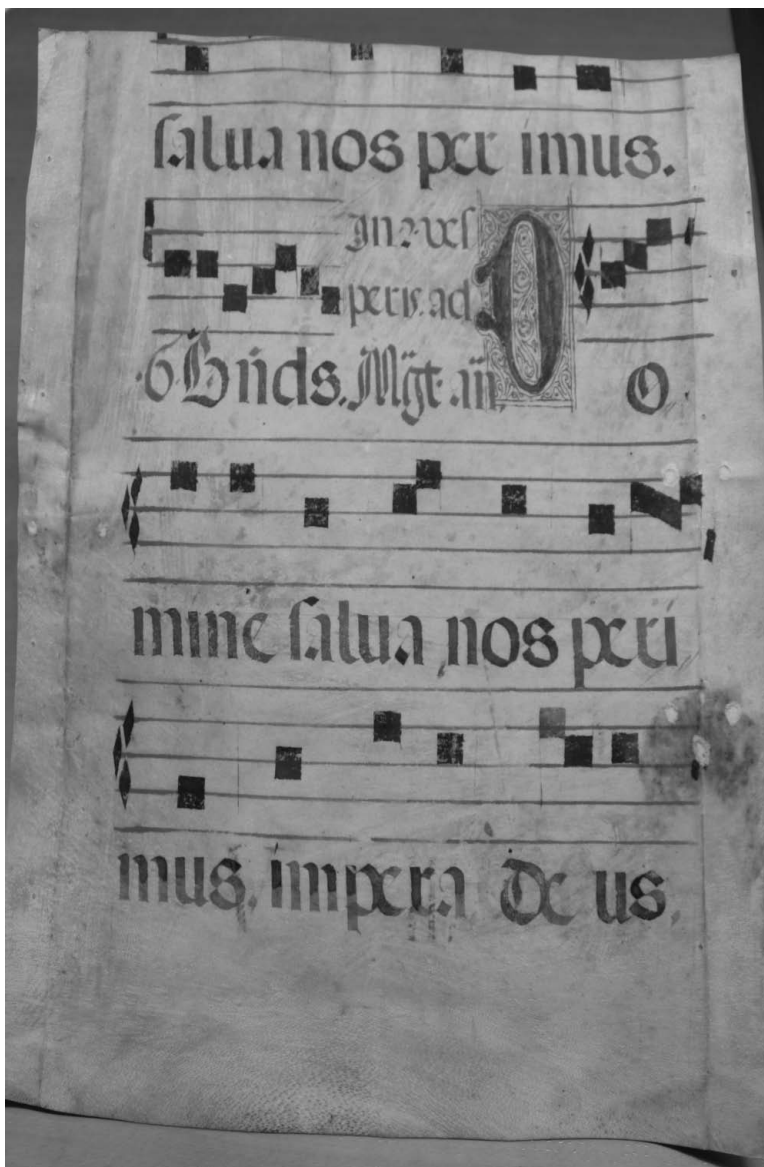 salua nos per imus.
In 2. ves
peris. ad
·6· Bn̄ds. Mg̃t. añ. D o
mine salua nos peri
mus. impera de us.